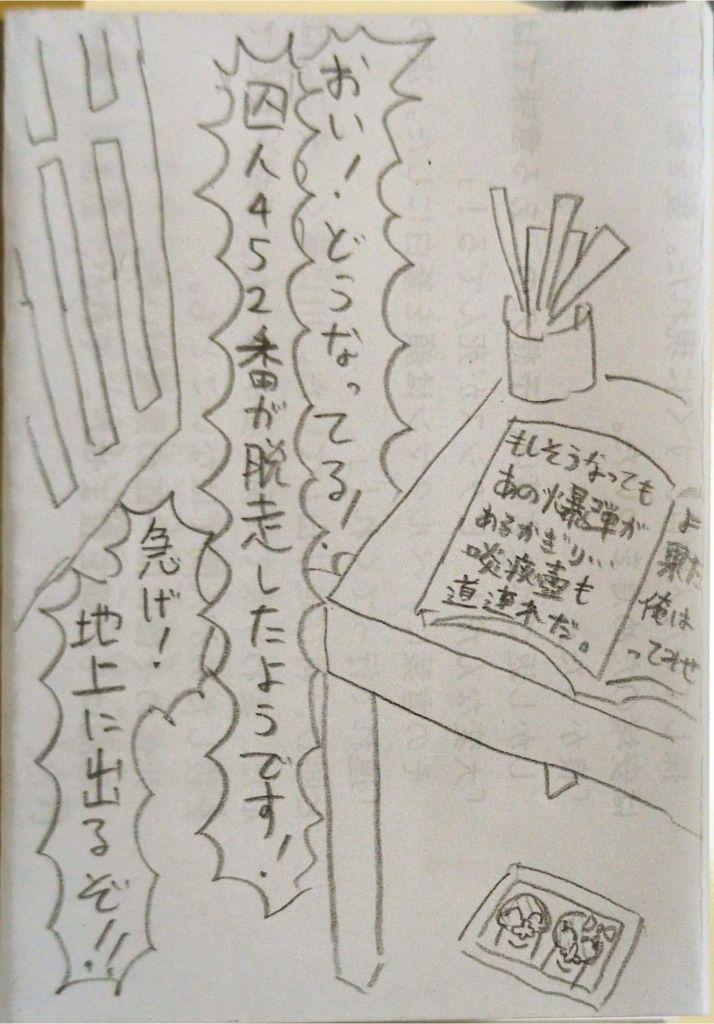 おい！どうなってる！
囚人452番が脱走したようです！
急げ！
地上に出るぞ!!
よ
果た
俺は
ってみせ
もしそうなっても
あの爆弾が
あるかぎり…
啖痰壷も
道連れだ。